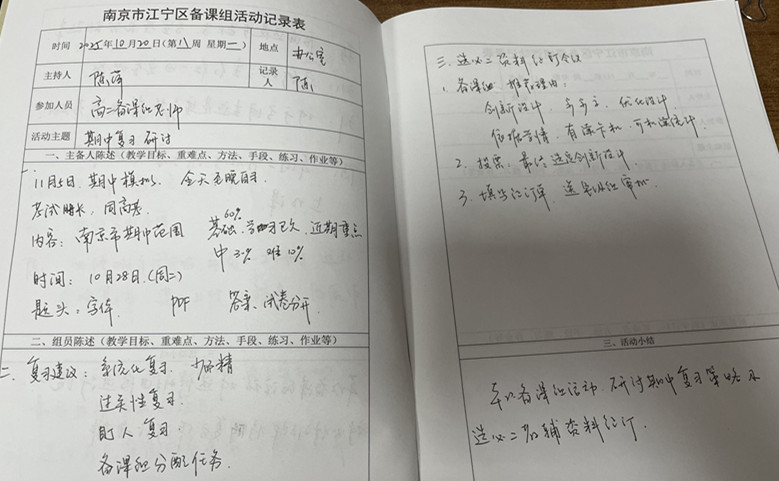 南京市江宁区备课组活动记录表
时间 2025年10月20日(第八周 星期一) 地点 办公室
主持人 陈 记录人 陈
参加人员 高二备课组老师
活动主题 期中复习研讨
一、主备人陈述(教学目标、重难点、方法、手段、练习、作业等)
11月5日 期中模拟 全天无晚自习
考试时长:同高考
内容:南京市期中范围 基础60% 学习已久,近期重点
中30% 难10%
时间:10月28日(周二)
题头:字体 PDF 答案、试卷分开
二、组员陈述(教学目标、重难点、方法、手段、练习、作业等)
二、复习建议:系统化复习
过关性复习
盯人复习
备课组分配任务
三、选必二资料征订会议
1. 备课组推荐理由:
创新设计 优化设计
依据学情,有
2. 投票,最终选定创新设计.
3. 填写征订单,送 审批
三、活动小结
本次备课组活动 研讨期中复习策略及
选必二教辅资料征订.